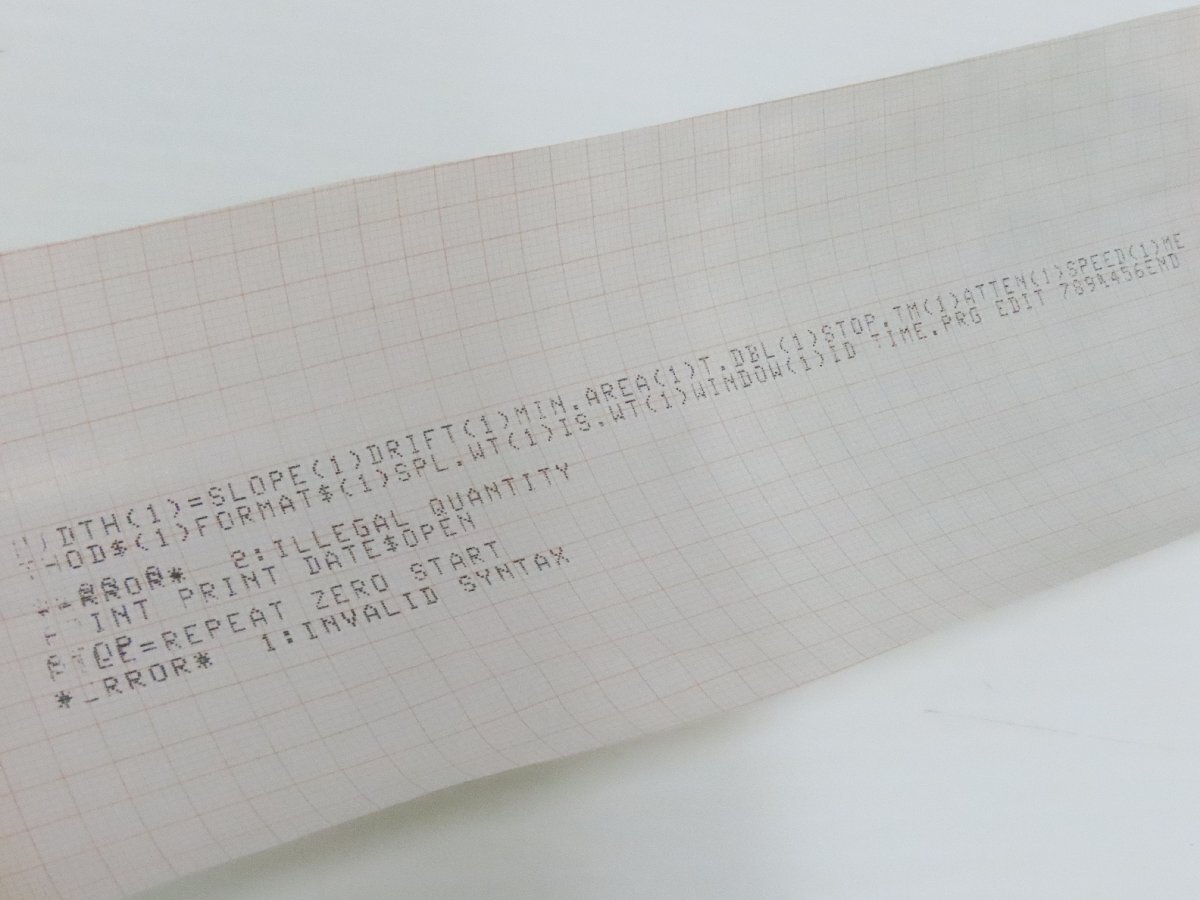 WIDTH(1)=SLOPE(1)DRIFT(1)MIN.AREA(1)T.DBL(1)STOP.TM(1)ATTEN(1)SPEED(1)ME
THOD$(1)FORMAT$(1)SPL.WT(1)IS.WT(1)WINDOW(1)ID TIME.PRG EDIT 789%456END
*ERROR* 2:ILLEGAL QUANTITY
PRINT PRINT DATE$OPEN
REPEAT ZERO START
*ERROR* 1:INVALID SYNTAX